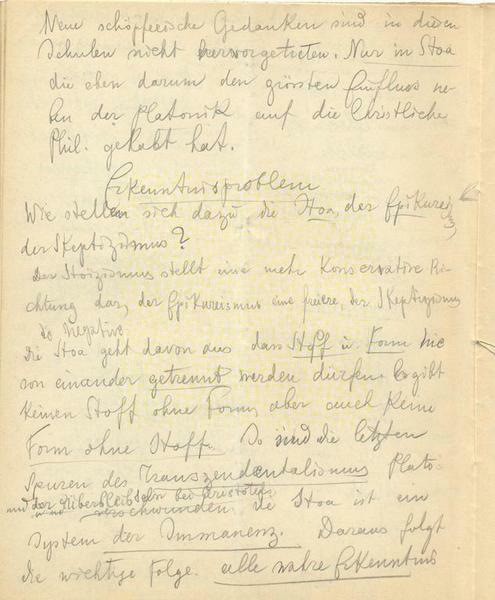 Neue schöpferische Gedanken sind in diesen
Schulen nicht hervorgetreten. Nur in Stoa
die eben darum den grössten Einfluss ne-
ben der Platonik auf die Christliche
Phil. gehabt hat.
Erkenntnisproblem
Wie stellen sich dazu die Stoa, der Epikurei
der Skeptizismus?
Der Stoizismus stellt eine mehr Konservative Ri-
chtung dar, der Epikureismus eine freiere, der Skeptizismus
die Negative
Die Stoa geht davon aus dass Stoff u. Form nie
von einander getrennt werden dürfen. Es gibt
keinen Stoff ohne Form, aber auch keine
Form ohne Stoff. So sind die letzten
Spuren des Transzendentalismus Platos
und der Überbleibseln bei Aristoteles
verschwunden die Stoa ist ein
System der Immanenz. Daraus folgt
die wichtige Folge. alle wahre Erkenntnis